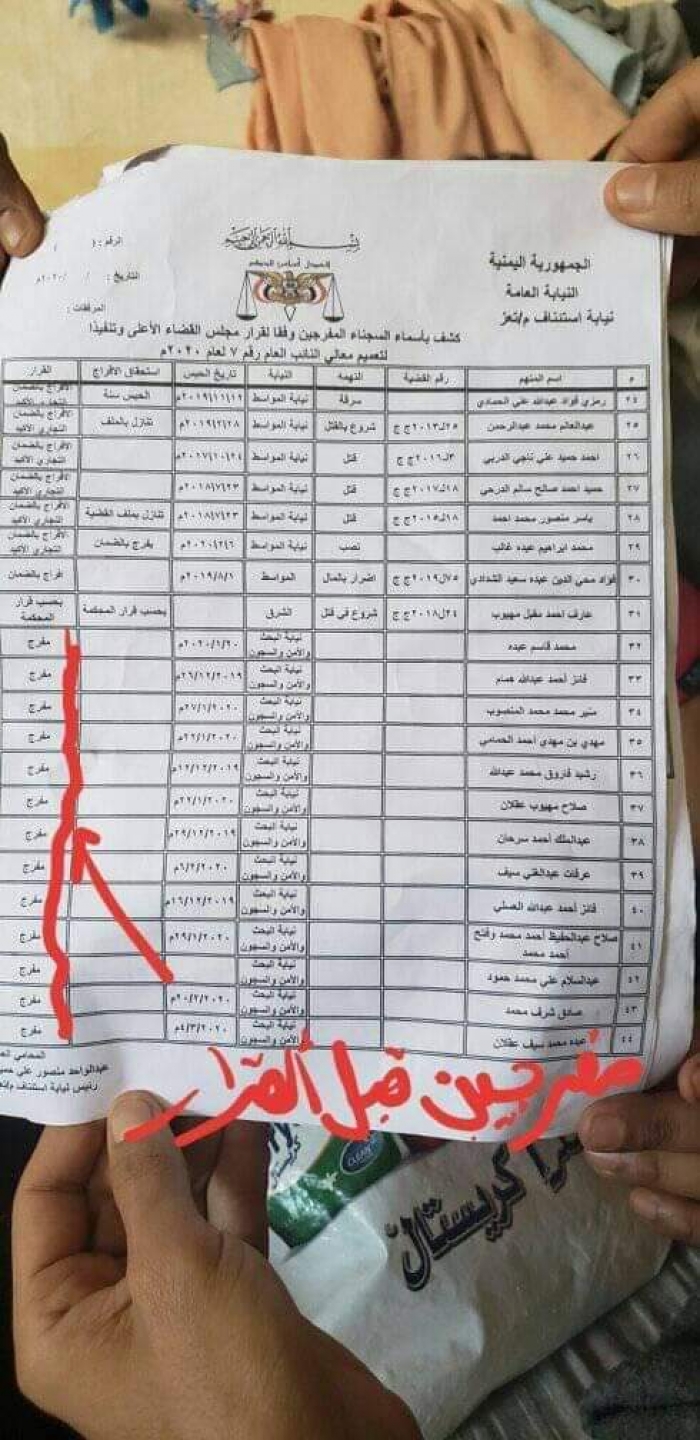 بسم الله الرحمن الرحيم
الجمهورية اليمنية
النيابة العامة
نيابة استئناف م/تعز
الرقم : ( )
التاريخ : / / ٢٠٢٠م
المرفقات :
كشف بأسماء السجناء المفرجين وفقا لقرار مجلس القضاء الأعلى وتنفيذا
لتعميم معالي النائب العام رقم ٧ لعام ٢٠٢٠م
م اسم المتهم رقم القضية التهمة النيابة تاريخ الحبس استحقاق الافراج القرار
٢٤ رمزي فؤاد عبدالله علي الحمادي سرقة نيابة المواسط ٢٠١٩/١١/١٢م الحبس سنة الافراج بالضمان التجاري الأكيد
٢٥ عبدالعالم محمد عبدالرحمن ٢٥لـ٢٠١٣ج ج شروع بالقتل نيابة المواسط ٢٠١٩/٢/٢٨م تنازل بالملف الافراج بالضمان التجاري الأكيد
٢٦ احمد حميد علي ناجي الدربي ٣لـ٢٠١٦ج ج قتل نيابة المواسط ٢٠١٧/١٠/٢٤م الافراج بالضمان التجاري الأكيد
٢٧ حميد احمد صالح سالم الدرحي ١٨لـ٢٠١٧ج ج قتل نيابة المواسط ٢٠١٨/٧/٢٣م الافراج بالضمان التجاري الأكيد
٢٨ ياسر منصور محمد احمد ١٨لـ٢٠١٥ج ج قتل نيابة المواسط ٢٠١٨/٧/٢٣م تنازل بملف القضية الافراج بالضمان التجاري الأكيد
٢٩ محمد ابراهيم عبده غالب نصب نيابة المواسط ٢٠٢٠/٢/٦م يفرج بالضمان الافراج بالضمان التجاري الأكيد
٣٠ فواد محي الدين عبده سعيد الشدادي ٧٥لـ٢٠١٩ج ج اضرار بالمال المواسط ٢٠١٩/٨/١م فراج بالضمان
٣١ عارف احمد مقبل مهيوب ٢٤لـ٢٠١٨ج ج شروع في قتل الشرق بحسب قرار المحكمة بحسب قرار المحكمة
٣٢ محمد قاسم عبده نيابة البحث والأمن والسجون ٢٠٢٠/١/٢٠م مفرج
٣٣ فائز أحمد عبدالله همام نيابة البحث والأمن والسجون ٢٦/١٢/٢٠١٩م مفرج
٣٤ منير محمد محمد المنصوب نيابة البحث والأمن والسجون ٢٧/١/٢٠٢٠م مفرج
٣٥ مهدي بن مهدي أحمد الحمامي نيابة البحث والأمن والسجون ٢٢/١/٢٠٢٠م مفرج
٣٦ رشيد فاروق محمد عبدالله نيابة البحث والأمن والسجون ١٢/١٢/٢٠١٩م مفرج
٣٧ صلاح مهيوب عقلان نيابة البحث والأمن والسجون ٢٢/١/٢٠٢٠م مفرج
٣٨ عبدالملك أحمد سرحان نيابة البحث والأمن والسجون ٢٩/١٢/٢٠١٩م مفرج
٣٩ عرفات عبدالغني سيف نيابة البحث والأمن والسجون ٦/٢/٢٠٢٠م مفرج
٤٠ فائز أحمد عبدالله العسلي نيابة البحث والأمن والسجون ١٦/١٢/٢٠١٩م مفرج
٤١ صلاح عبدالحفيظ أحمد محمد وفتح أحمد محمد نيابة البحث والأمن والسجون ٢٩/١/٢٠٢٠م مفرج
٤٢ عبدالسلام علي محمد حمود نيابة البحث والأمن والسجون مفرج
٤٣ صادق شرف محمد نيابة البحث والأمن والسجون ٢٠/٢/٢٠٢٠م مفرج
٤٤ عبده محمد سيف عقلان نيابة البحث والأمن والسجون ٤/٣/٢٠٢٠م مفرج
المحامي
عبدالواحد منصور علي
رئيس نيابة استئناف م/تعز
مفرجين قبل القرار
CLEAN
كريستال